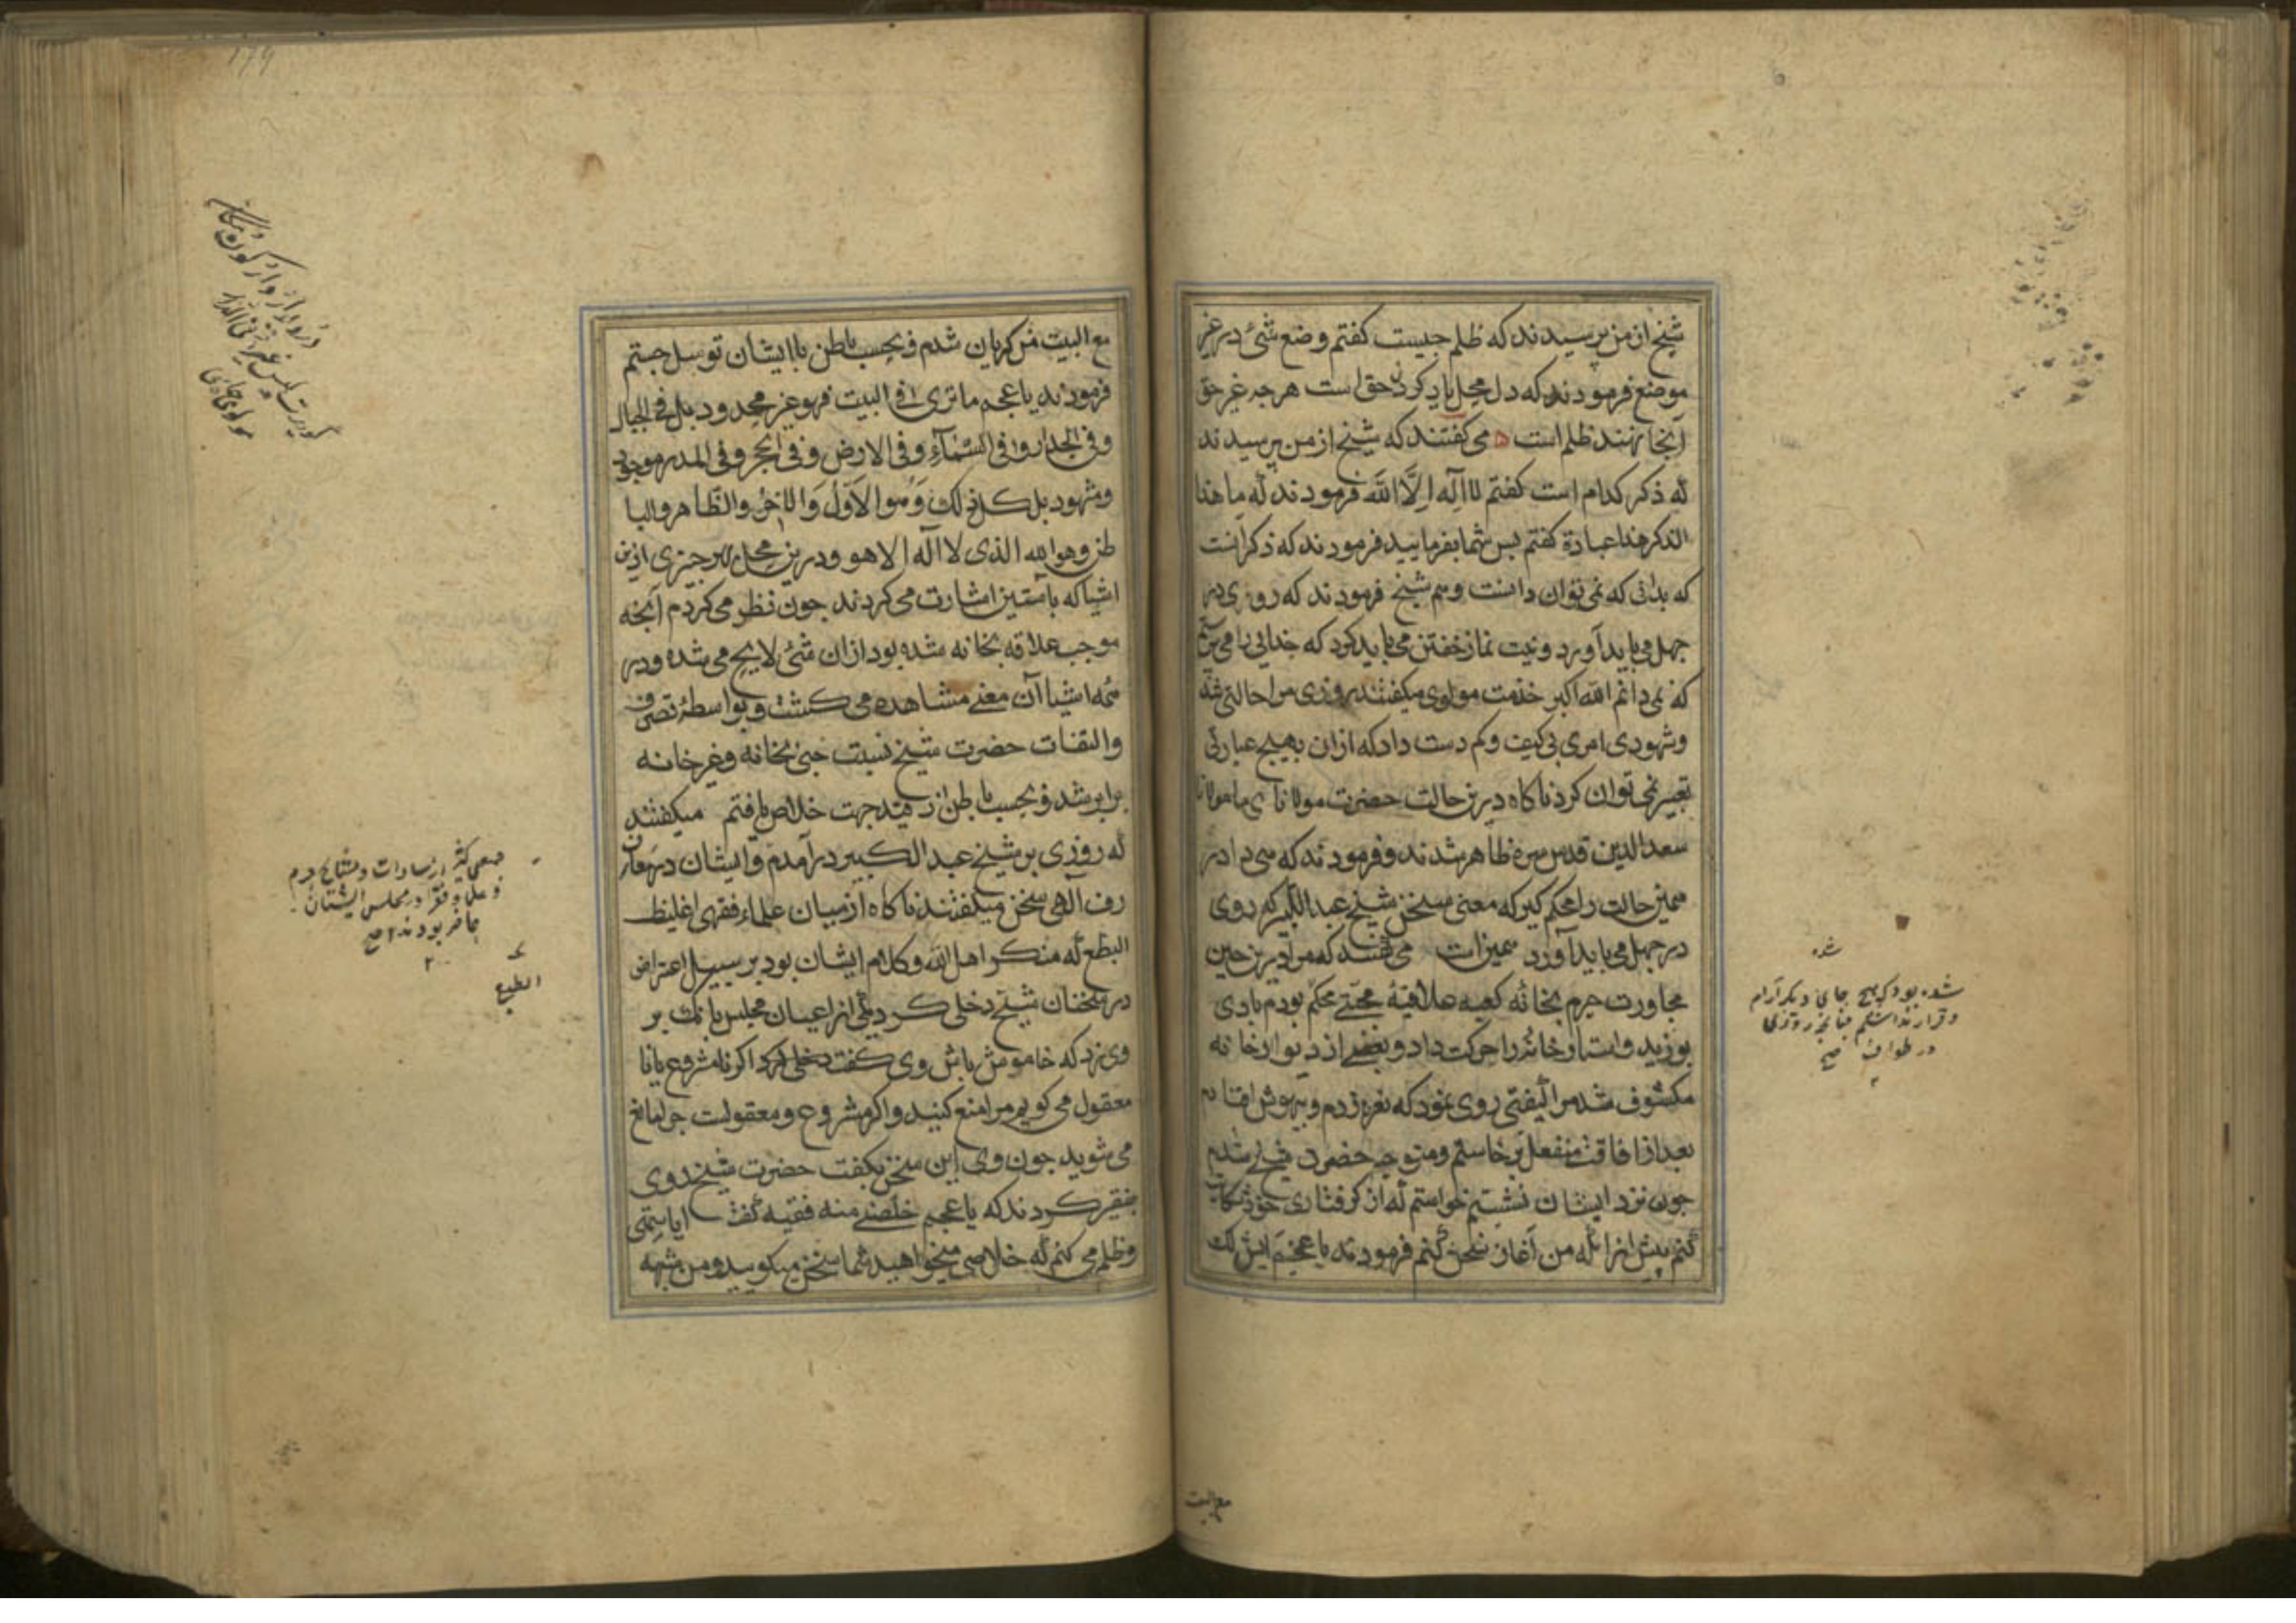 شیخ از من پرسیدند که ظلم جیست کفتم وضع شئ در غیر
موضع فرمودند که دل محل یاد کردن حق است هر جه غیر حق
آنجا نهند ظلم است می کفتند که شیخ از من پرسیدند
که ذکر کدام است کفتم لا اله الا الله فرمودند که ما هذا
الذکر هذا عبادة کفتم پس شما بفرمایید فرمودند که ذکر انست
که بدانی که نمی توان دانست و هم شیخ فرمودند که روی در
جهل می باید آورد و نیت نماز خفتن می باید کرد که خدایی را می پرستم
که نمی دانم الله اکبر خدمت مولوی میکفتند روزی مرا حالتی شد
و شهودی امری بی کیف و کم دست داد که ازان بهیج عبارتی
تعبیر نمی توان کرد ناکاه درین حالت حضرت مولانای ما مولانا
سعد الدین قدس سره ظاهر شدند و فرمودند که
همین حالت را محکم کیر که معنی سخن شیخ عبد الکبیر که روی
در جهل می باید آورد همین است می کفتند که مرا درین حین
مجاورت حرم بخانه کعبه علاقۀ محبتی محکم بود بادی
بوزید و استار خانه را حرکت داد و بعضی از دیوار خانه
مکشوف شد مرا کیفیتی روی نمود که نعره زدم و بیهوش افتادم
بعد از افاقت منفعل برخاستم و متوجه حضرت شیخ شدم
جون نزد ایشان نشستم خواستم که از کرفتاری خود شکایت
کنم پیش از انکه من آغاز سخن کنم فرمودند یا عجم ایش لک
شده
شده بود که هیچ جای دیگر آرام
و قرار نداشتم چنانچه روزی
در طواف صح
مع البیت
مع البیت من کریان شدم و بحسب باطن با ایشان توسل جستم
فرمودند یا عجم ما تری فی البیت فهو غیر محدود بل فی الجبال
و فی الجدار و فی السماء و فی الارض و فی الحجر و فی المدر موجود
و مشهود بل کل ذلک و هو الاول و الآخر و الظاهر و البا
طن و هو الله الذی لا اله الا هو و درین محل بهر جیزی ازین
اشیا که باستین اشارت می کردند جون نظر می کردم آنجه
موجب علاقه بخانه شده بود ازان شئ لایح می شده و در
همه اشیا آن معنی مشاهده می کشت و بواسطۀ تصرف
و التفات حضرت شیخ نسبت حبی بخانه و غیر خانه
برابر شد و بحسب باطن از جهت خلاص یافتم میکفتند
که روزی بر شیخ عبد الکبیر درآمدم و ایشان در معا
رف الهی سخن میکفتند ناکاه از میان علماء فقهی غلیظ
البطع که منکر اهل الله و کلام ایشان بود بر سبیل اعتراض
در سخنان شیخ دخلی کرد یکی از اعیان مجلس بانک بر
وی زد که خاموش باش وی کفت اکر نا مشروع یا نا
معقول می کویم مرا منع کنید و اکر مشروع و معقولست جرا مانع
می شوید جون وی این سخن بکفت حضرت شیخ روی
بفقیر کردند که یا عجم خلصنی منه فقیه کفت
و ظلم می کنم که خلاصی میخواهید شما سخن میکویید و من شبهه
جمعی کثیر از سادات و مشایخ حرم
و علما و فقرا در مجلس ایشان
حاضر بودند صح
الطبع